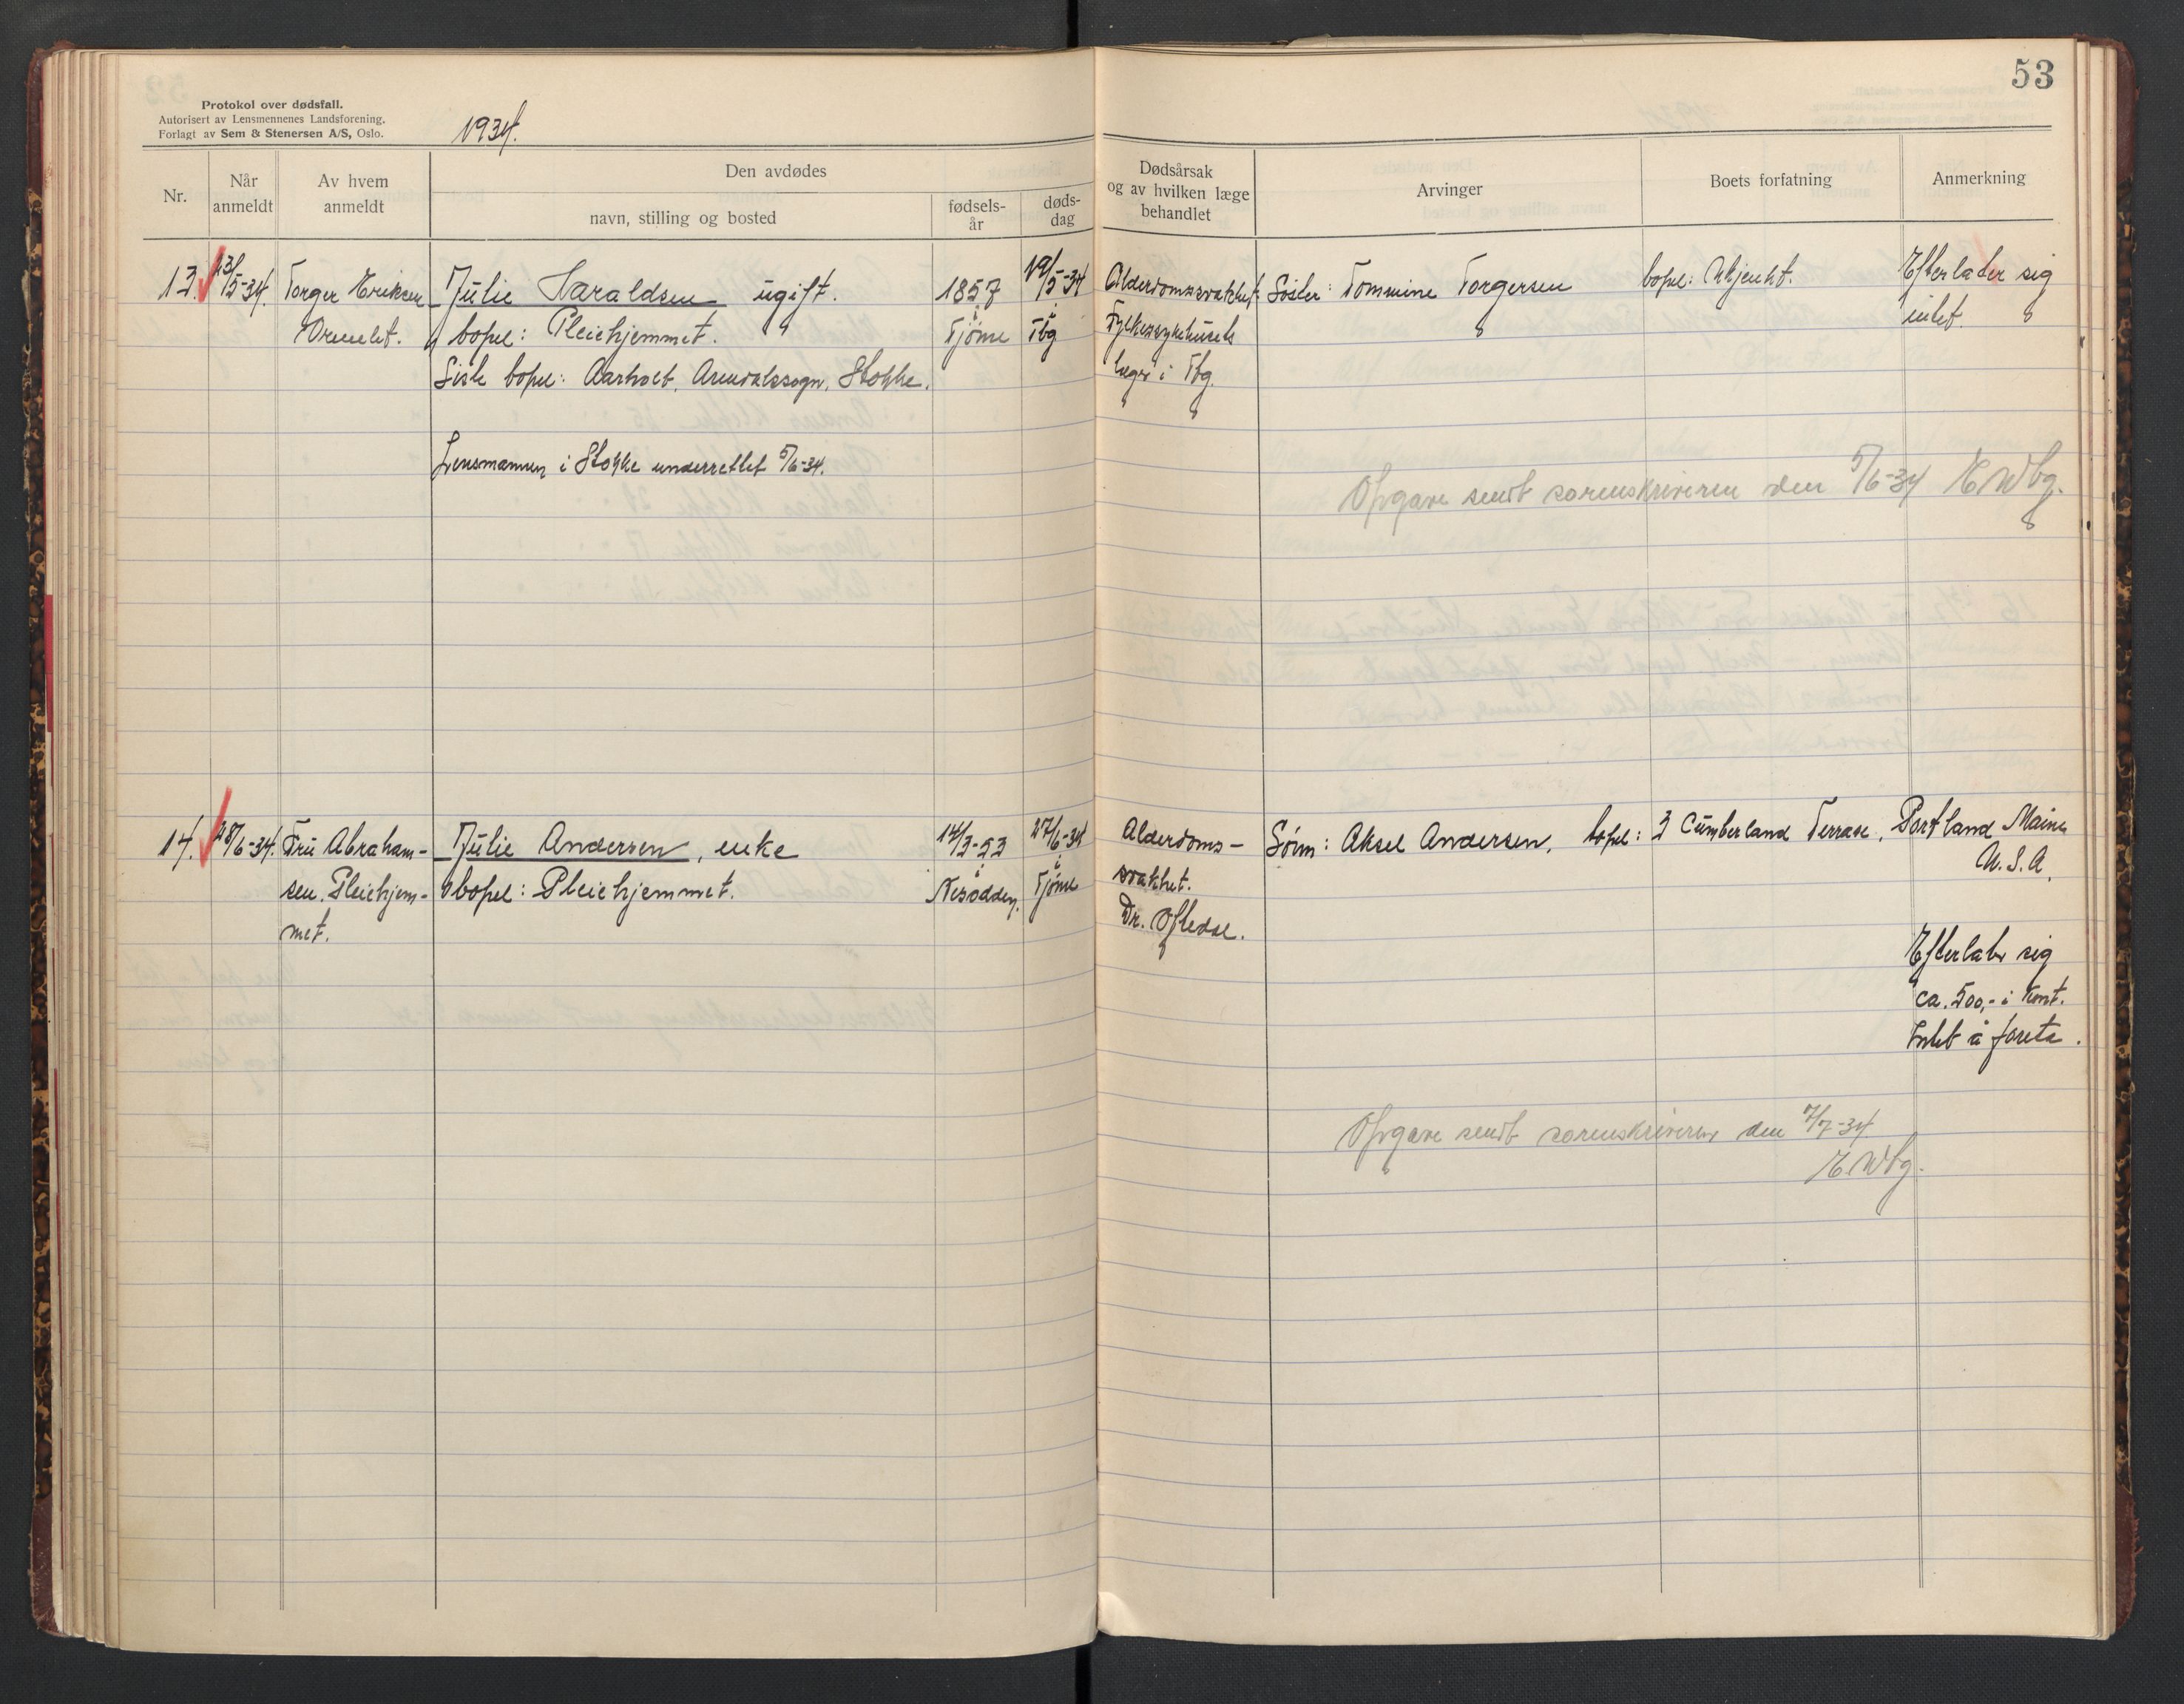 53
Protokol over dødsfall.
Autorisert av Lensmennenes Landsforening.
Forlagt av Sem & Stenersen A/S, Oslo.
1934.
Nr.
Når anmeldt
Av hvem anmeldt
Den avdødes
navn, stilling og bosted
fødsels-
år
døds-
dag
Dødsårsak
og av hvilken læge
behandlet
Arvinger
Boets forfatning
Anmerkning
13. 23/5-34. Torger Eriksen Julie Haraldsen ugift. 1857 19/5-34 Alderdomssvakhet Søster: Tommine Torgersen bopel: Ukjent. Efterlater sig
Ormelet. bopel: Pleiehjemmet. i Tjøme i Tbg Fylkessykehusets intet.
Siste bopel: Aarholt, Arendalssogn, Stokke. læger i Tbg.
Lensmannen i Stokke underrettet 5/6-34.
Opgave sendt sorenskriveren den 5/6-34 E Wbg.
14. 28/6-34. Fru Abraham- Julie Andersen, enke 14/3-53 27/6-34 Alderdoms- Sønn: Aksel Andersen, bopel: 3 Cumberland Terrase, Portland Maine
U.S.A.
sen. Pleiehjem- bopel: Pleiehjemmet. i Nesodden. i Tjøme svakhet.
met. Dr. Oftedal.
Efterlater sig
ca. 500,- i kont.
Intet å foreta.
Opgave sendt sorenskriveren den 7/7-34
E. Wbg.